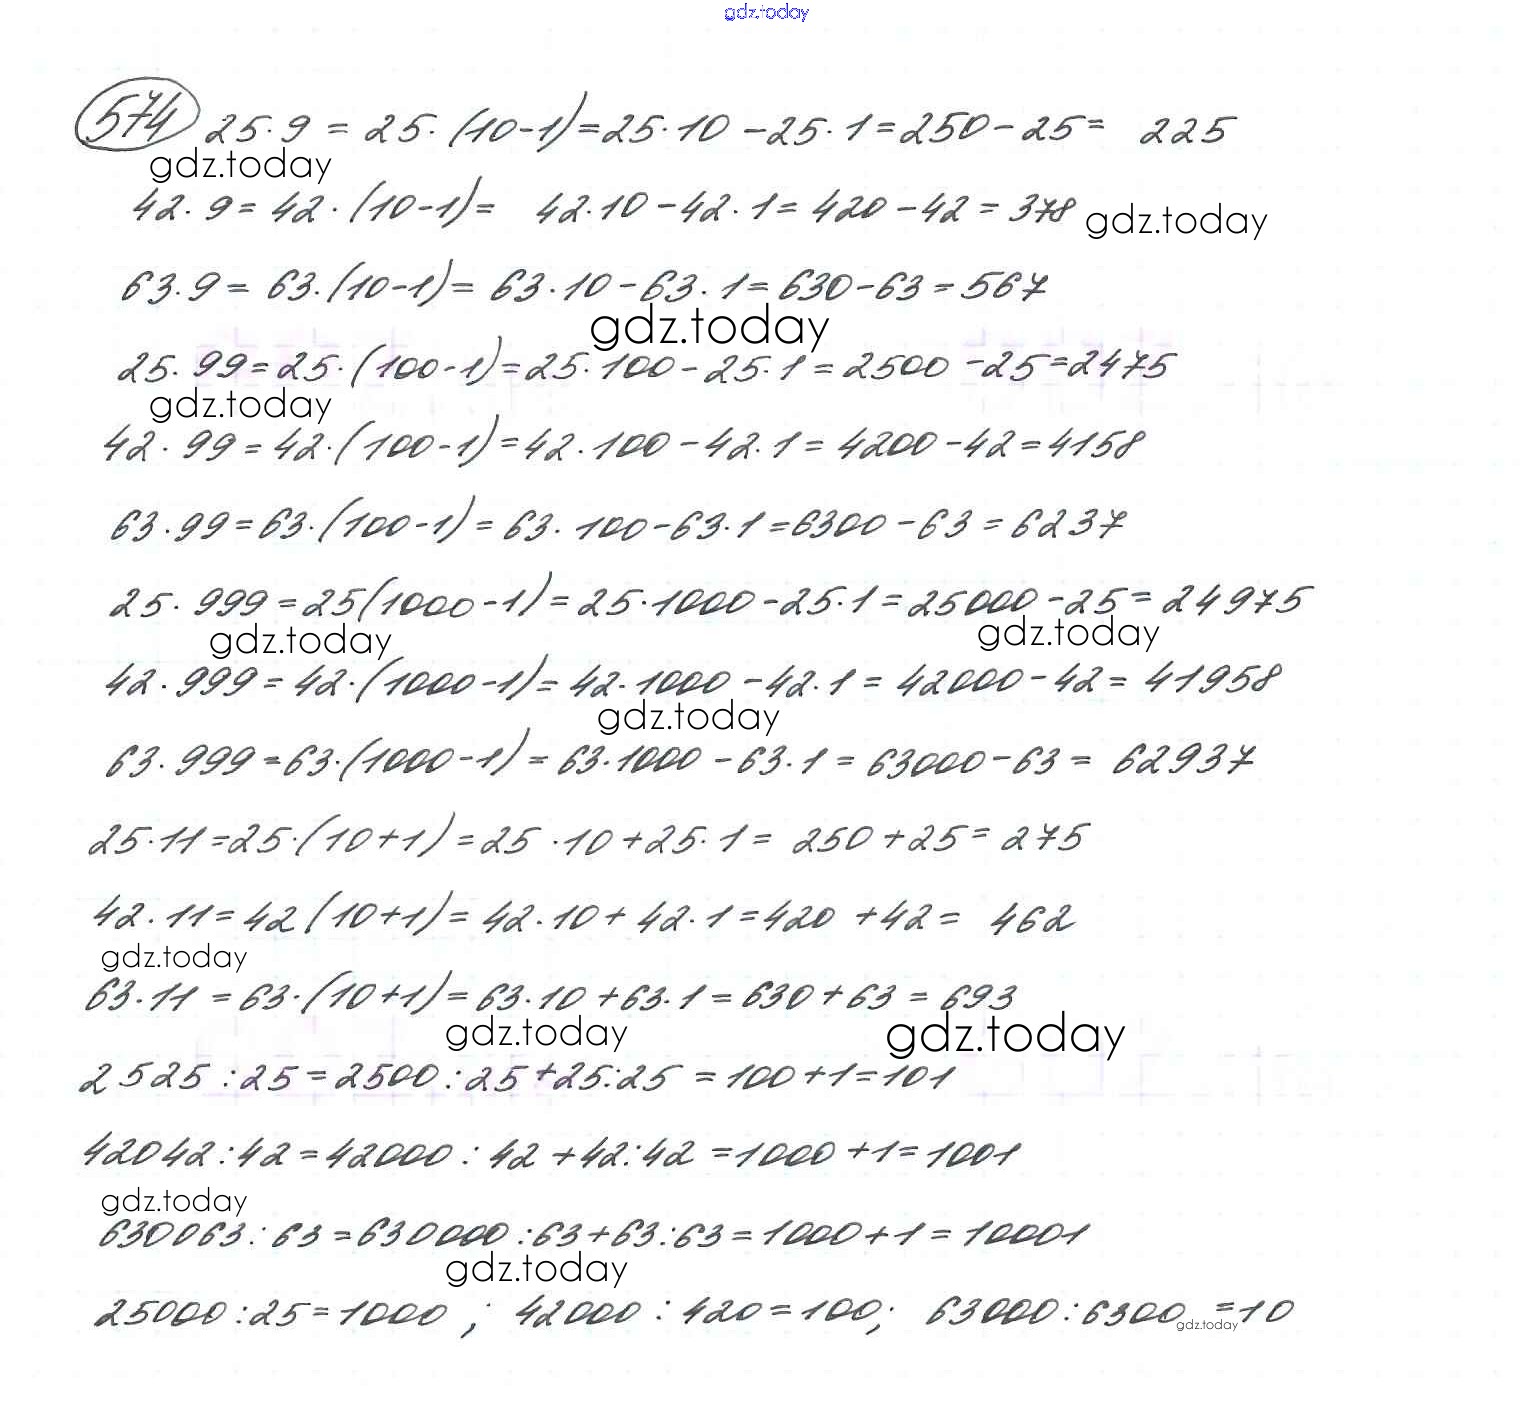 gdz.today
574 25·9 = 25·(10-1)=25·10-25·1=250-25= 225
gdz.today
42·9=42·(10-1)= 42·10-42·1=420-42=378
gdz.today
63·9=63·(10-1)=63·10-63·1=630-63=567
gdz.today
25·99=25·(100-1)=25·100-25·1=2500-25=2475
gdz.today
42·99=42·(100-1)=42·100-42·1=4200-42=4158
63·99=63·(100-1)=63·100-63·1=6300-63=6237
25·999=25(1000-1)=25·1000-25·1=25000-25=24975
gdz.today gdz.today
42·999=42·(1000-1)=42·1000-42·1=42000-42=41958
gdz.today
63·999=63·(1000-1)=63·1000-63·1=63000-63=62937
25·11=25·(10+1)=25·10+25·1=250+25=275
42·11=42(10+1)=42·10+42·1=420+42=462
gdz.today
63·11=63·(10+1)=63·10+63·1=630+63=693
gdz.today gdz.today
2525:25=2500:25+25:25=100+1=101
42042:42=42000:42+42:42=1000+1=1001
gdz.today
630063:63=630000:63+63:63=1000+1=10001
gdz.today
25000:25=1000; 42000:420=100; 63000:6300=10
gdz.today